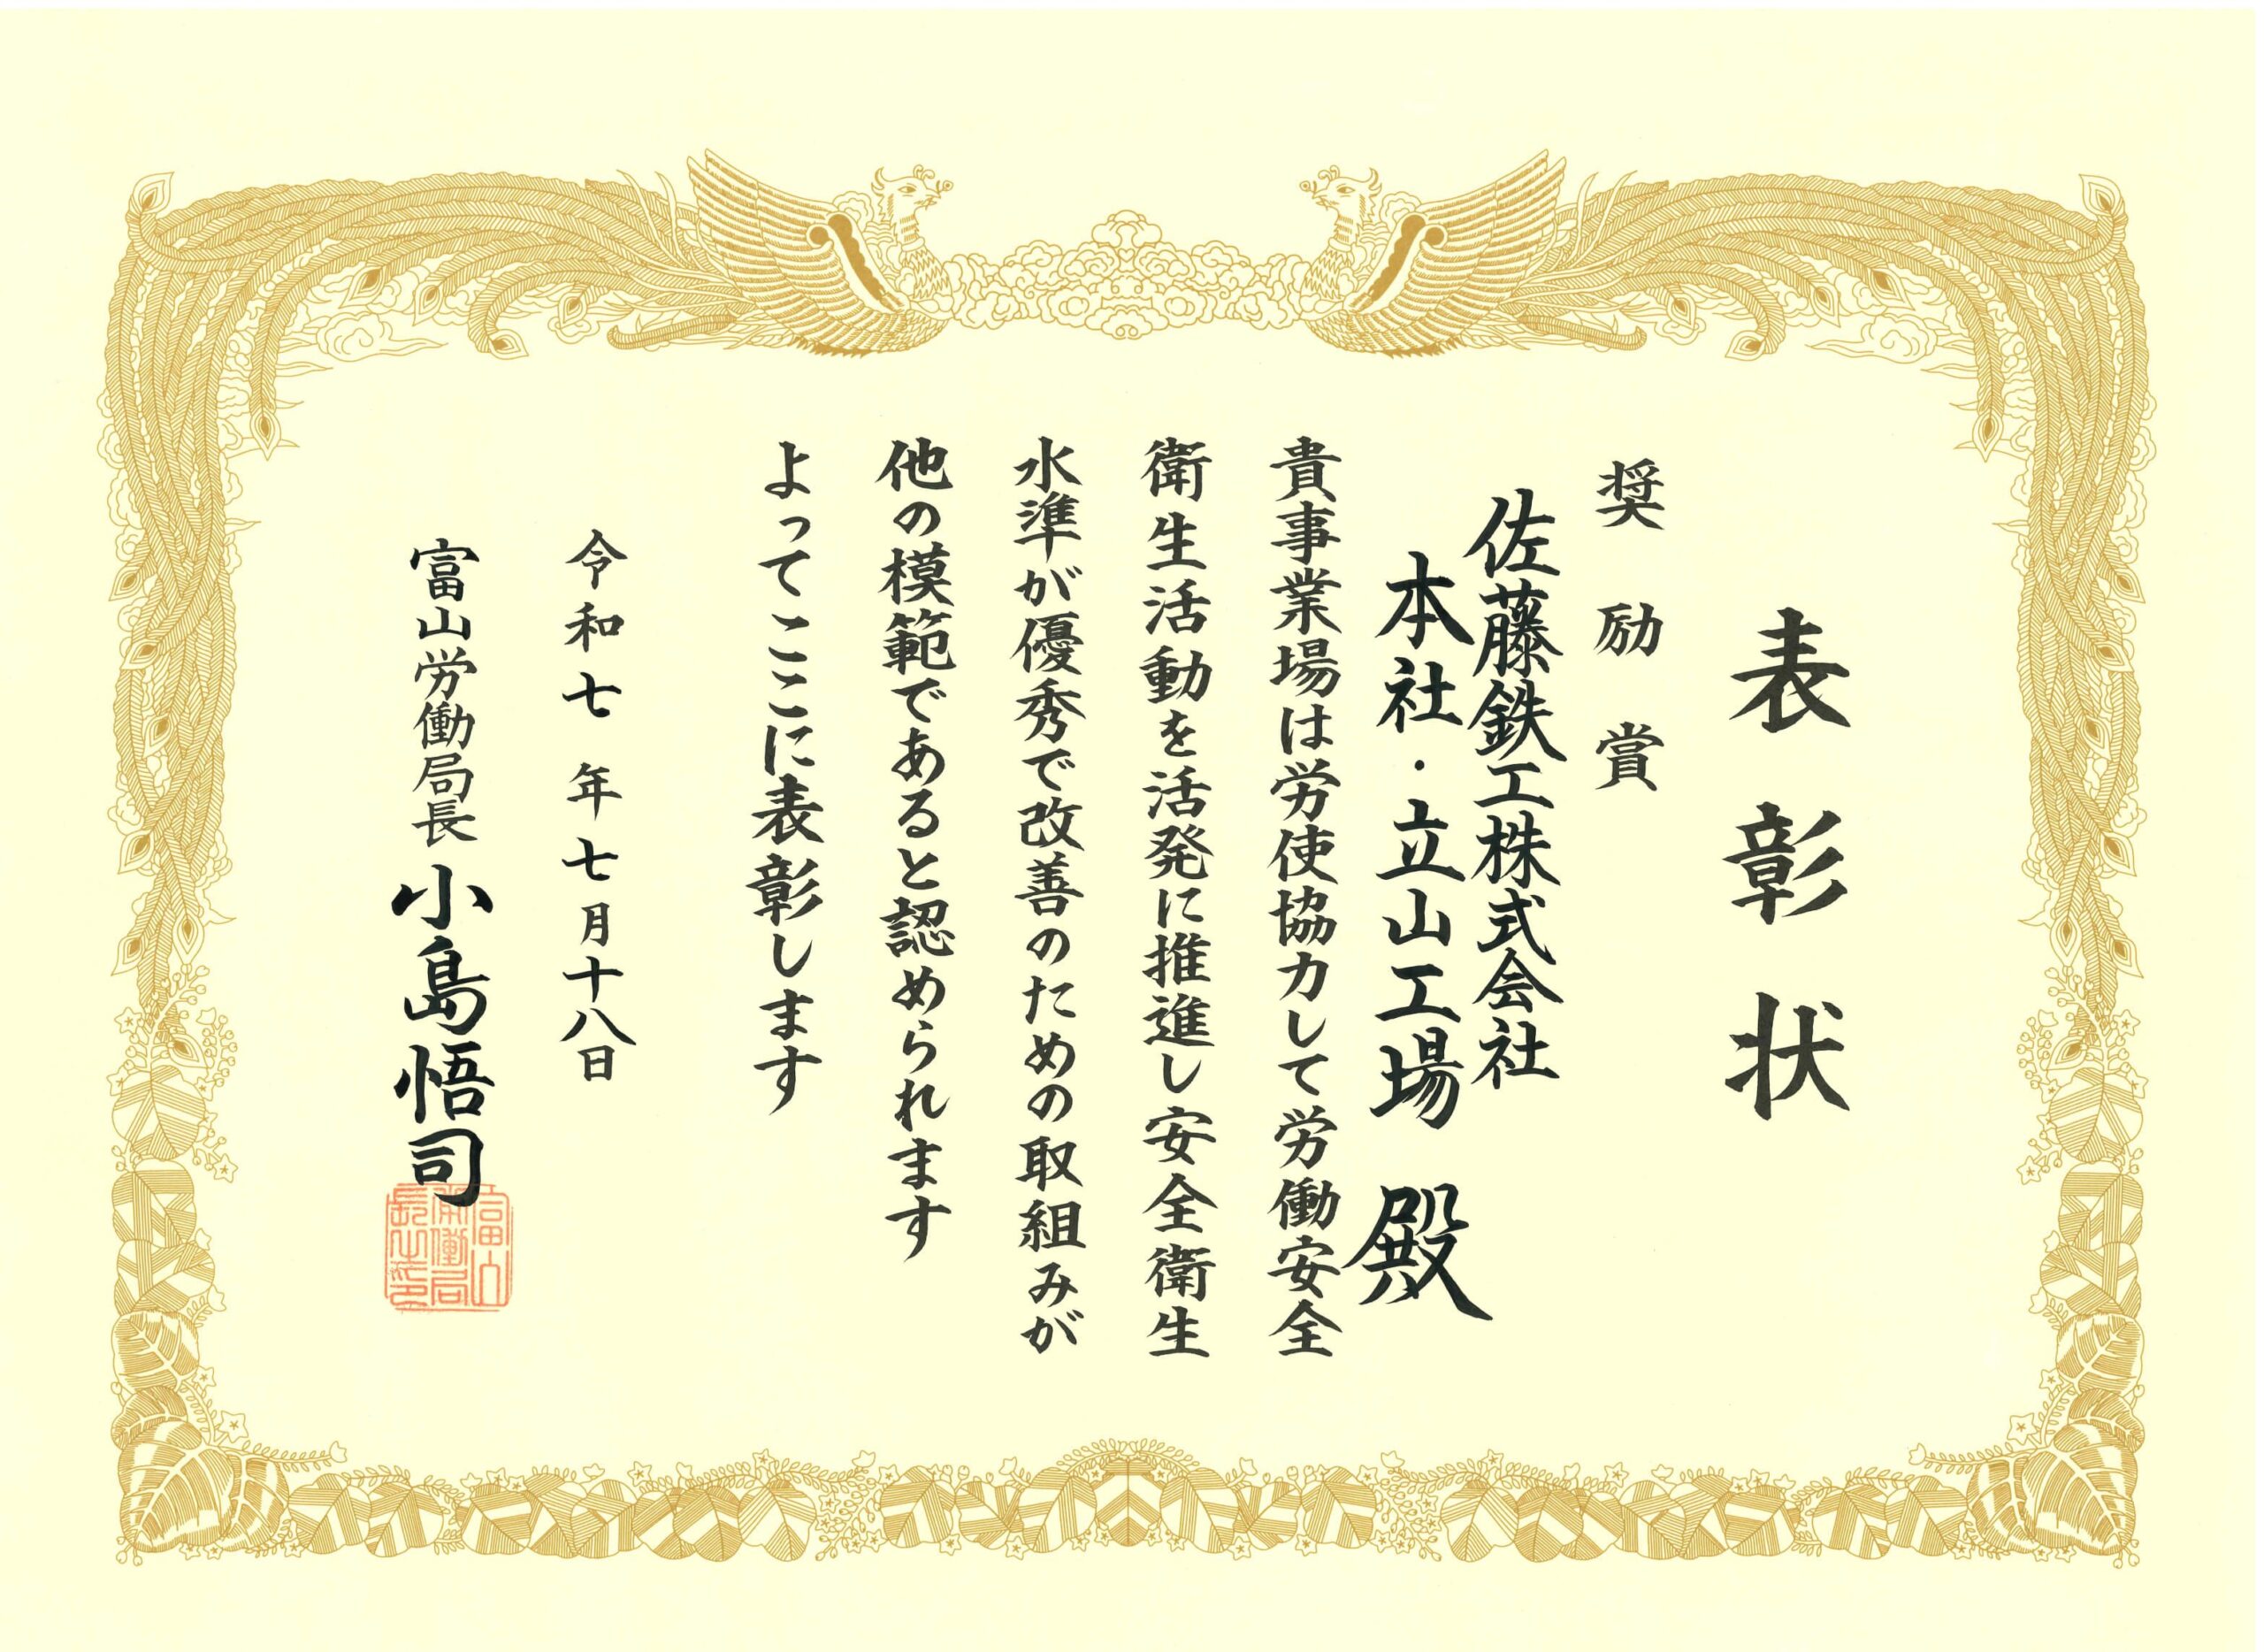 表彰状
奨励賞
佐藤鉄工株式会社
本社・立山工場 殿
貴事業場は労使協力して労働安全
衛生活動を活発に推進し安全衛生
水準が優秀で改善のための取組みが
他の模範であると認められます
よってここに表彰します
令和七年七月十八日
富山労働局長 小島悟司
富山
労働局
長之印